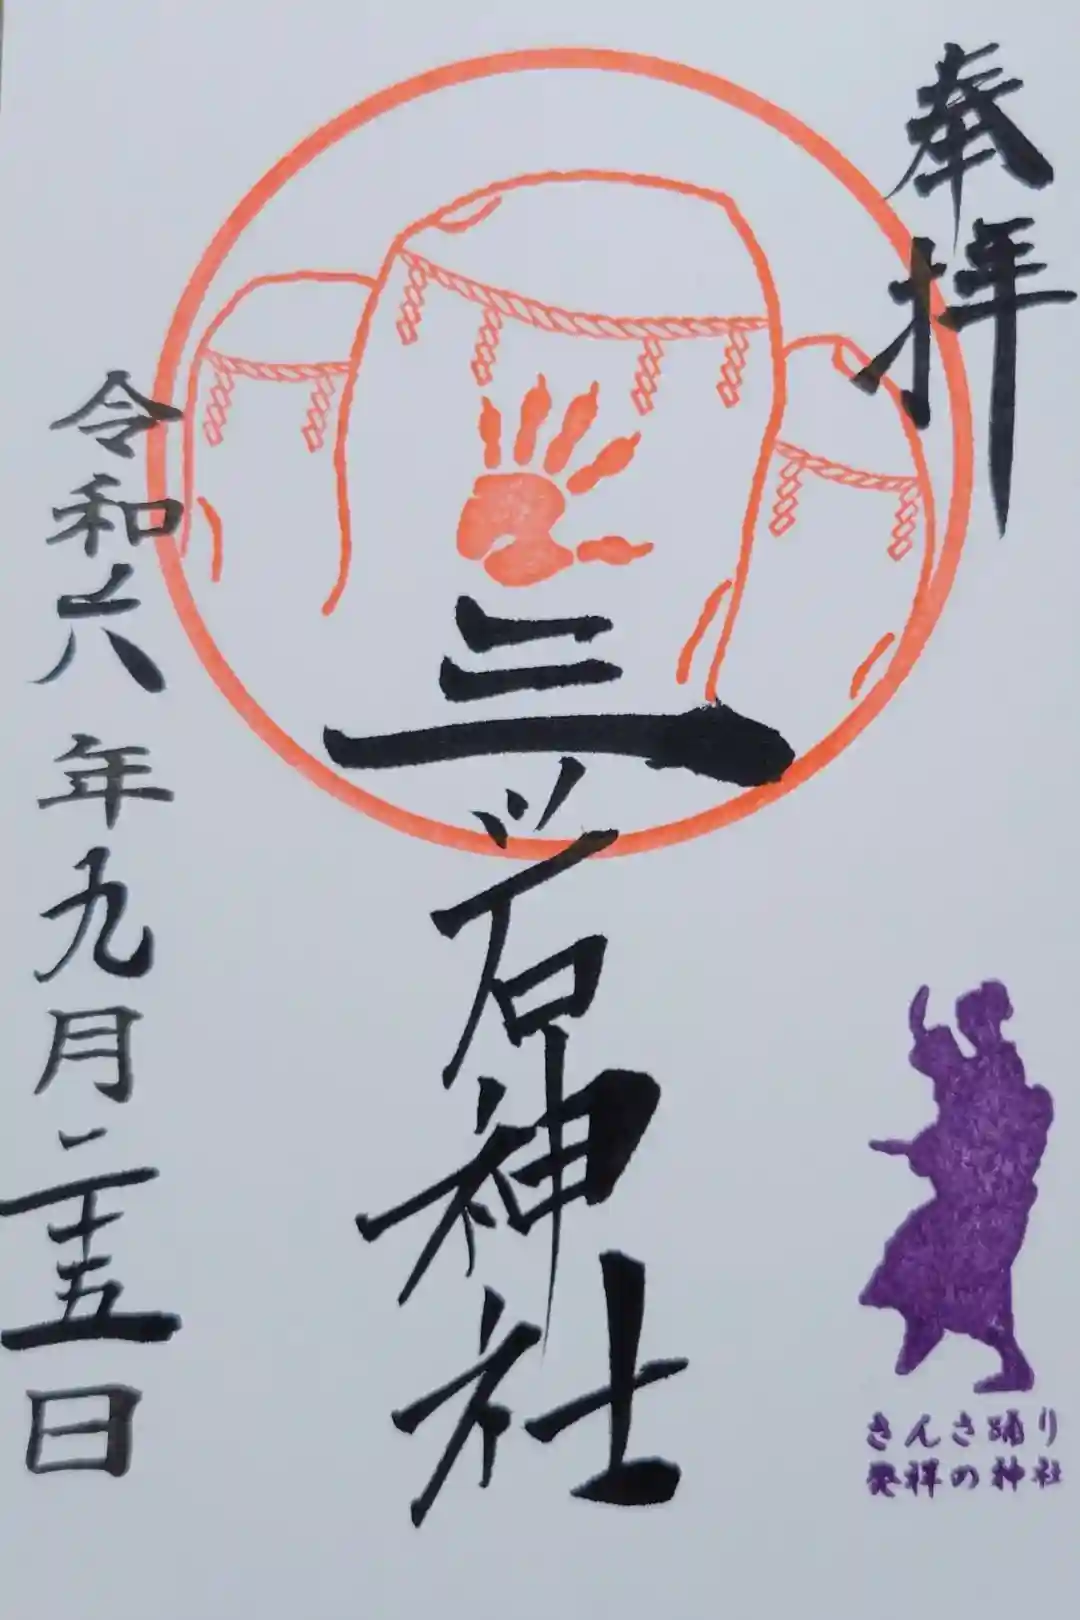 奉拝
三ッ石神社
令和六年九月二十五日
さんさ踊り
発祥の神社